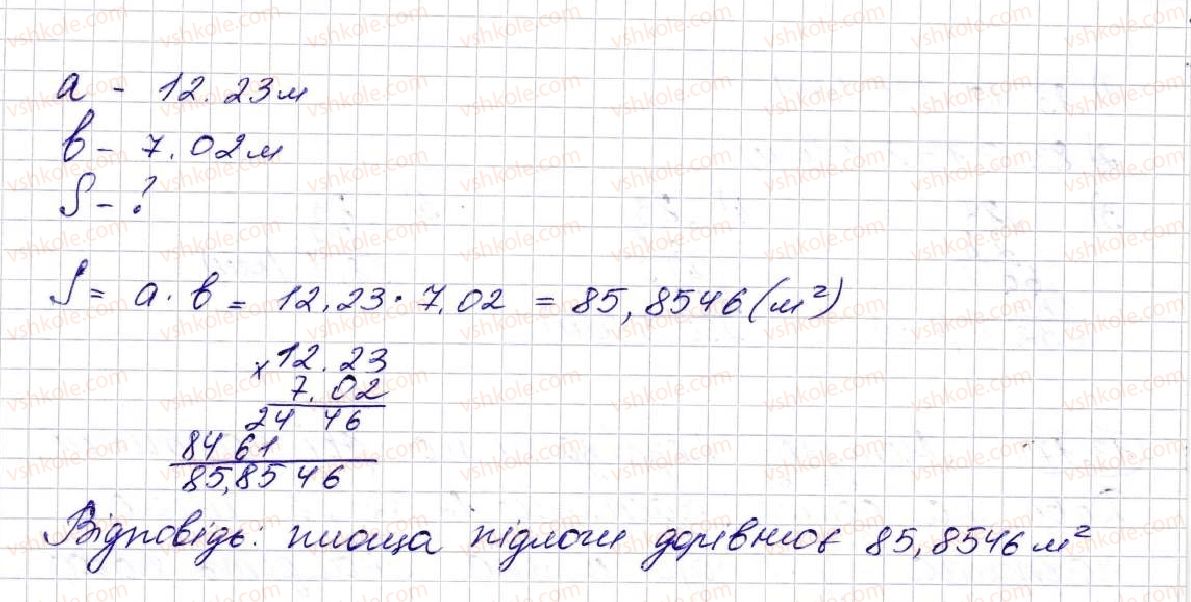 a - 12.23м
b - 7.02м
S - ?
S = a · b = 12,23 · 7,02 = 85,8546 (м²)
× 12.23
7.02
24 46
84 61
85,85 46
Відповідь: площа підлоги дорівнює 85,8546 м²